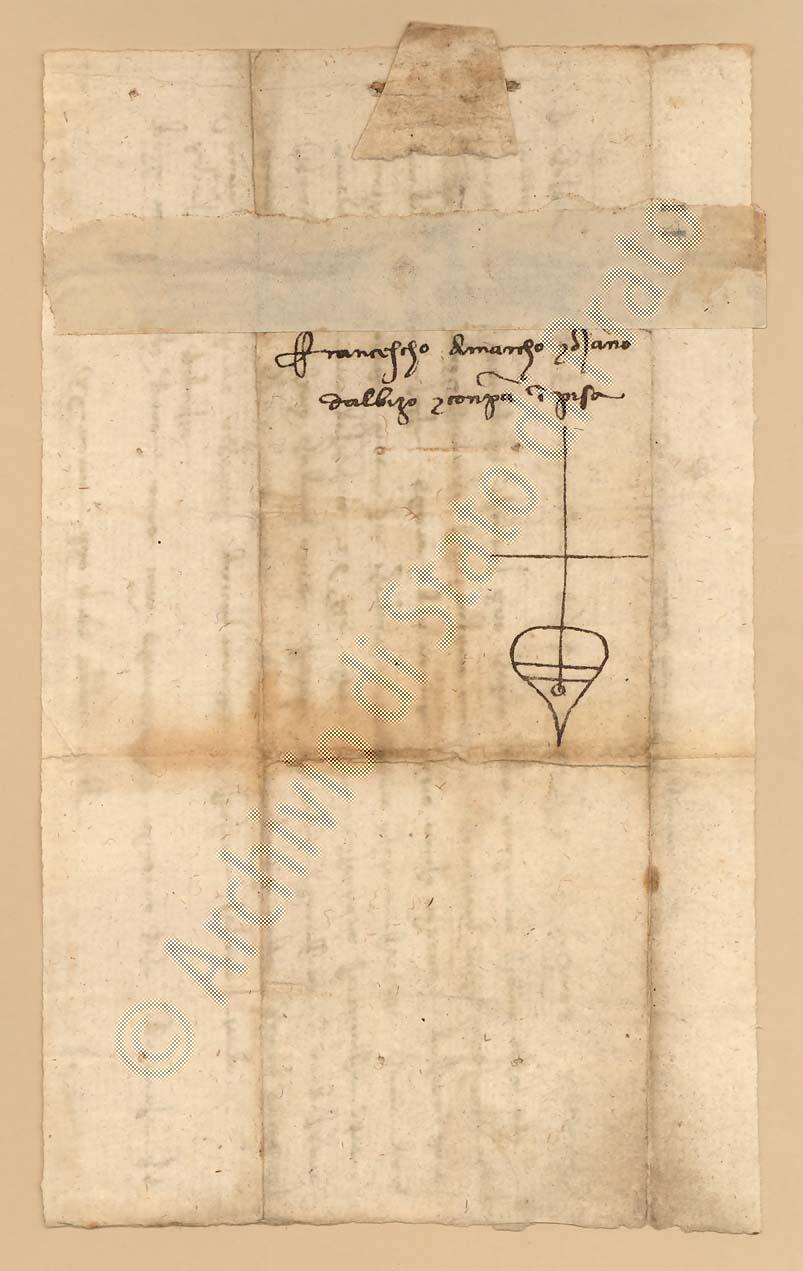 Francescho dmarcho e di Jano
dalbizo e conpa i pisa
© Archivio di Stato di Prato